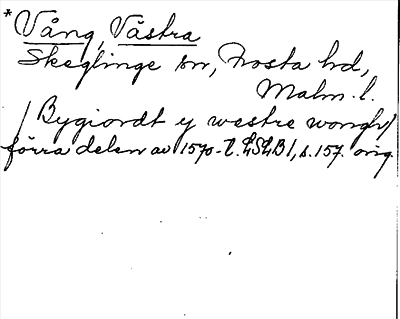 * Vång, Västra
Skeglinge sn, Frosta hd,
Malm. l.
/Bygiordt y westre wongh/
förra delen av 1570-t. LSLB 1, s. 157. orig.